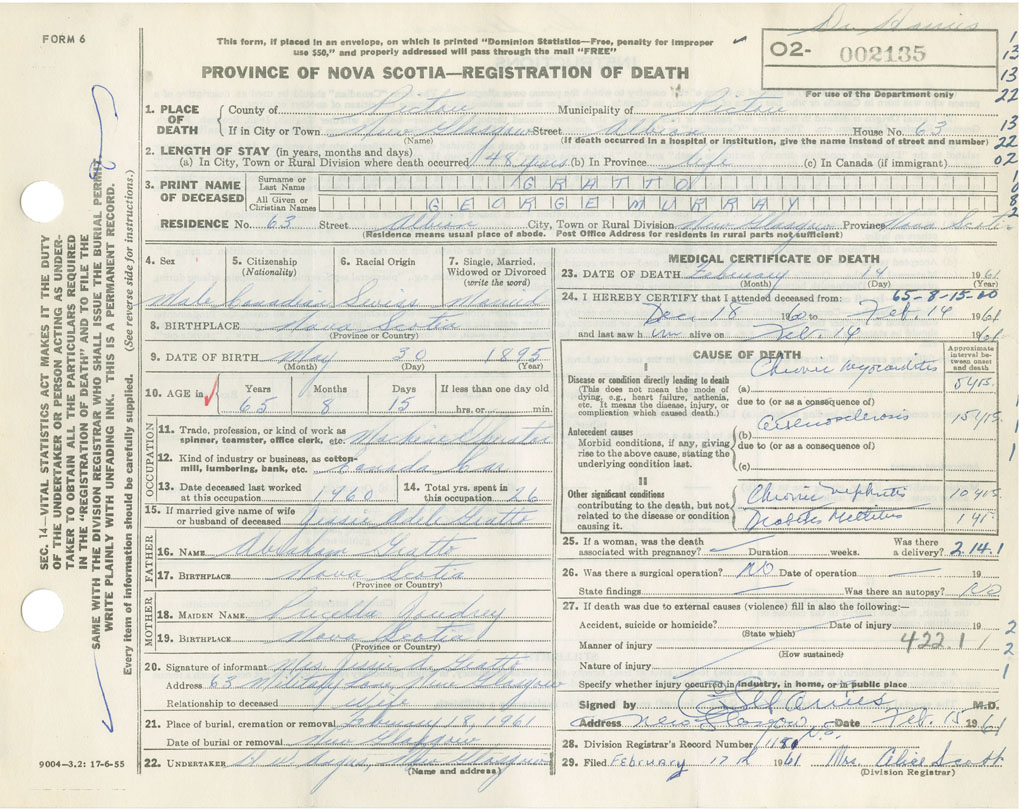 Dr Harries
FORM 6
This form, if placed in an envelope, on which is printed "Dominion Statistics—Free, penalty for improper
use $50," and properly addressed will pass through the mail "FREE"
O2- 002135
For use of the Department only
PROVINCE OF NOVA SCOTIA—REGISTRATION OF DEATH
1
13
13
22
13
22
02
1
0
8
2
1. PLACE OF DEATH
County of Pictou Municipality of Pictou
If in City or Town New Glasgow Street Albion House No. 63
(Name) (If death occurred in a hospital or institution, give the name instead of street and number)
2. LENGTH OF STAY (in years, months and days)
(a) In City, Town or Rural Division where death occurred 48 years (b) In Province life (c) In Canada (if immigrant)
3. PRINT NAME OF DECEASED
Surname or Last Name GRATTO
All Given or Christian Names GEORGE MURRAY
RESIDENCE No. 63 Street Albion City, Town or Rural Division New Glasgow Province Nova Scotia
(Residence means usual place of abode. Post Office Address for residents in rural parts not sufficient)
4. Sex Male
5. Citizenship (Nationality) Canadian
6. Racial Origin Swiss
7. Single, Married, Widowed or Divorced (write the word) Married
8. BIRTHPLACE Nova Scotia
(Province or Country)
9. DATE OF BIRTH May 30 1895
(Month) (Day) (Year)
10. AGE in Years 65 Months 8 Days 15 If less than one day old
hrs. or min.
OCCUPATION
11. Trade, profession, or kind of work as spinner, teamster, office clerk, etc. Machine Operator
12. Kind of industry or business, as cotton-mill, lumbering, bank, etc. Canada Car
13. Date deceased last worked at this occupation 1960
14. Total yrs. spent in this occupation 26
15. If married give name of wife or husband of deceased Jessie Gratto
FATHER
16. NAME Abraham Gratto
17. BIRTHPLACE Nova Scotia
(Province or Country)
MOTHER
18. MAIDEN NAME
19. BIRTHPLACE Nova Scotia
(Province or Country)
20. Signature of informant Mrs. Jessie Gratto
Address 63 Military Lane, New Glasgow
Relationship to deceased Wife
21. Place of burial, cremation or removal February 18, 1961
Date of burial or removal New Glasgow
22. UNDERTAKER New Glasgow
(Name and address)
MEDICAL CERTIFICATE OF DEATH
23. DATE OF DEATH February 14 1961
(Month) (Day) (Year)
65-8-15-00
24. I HEREBY CERTIFY that I attended deceased from:
Dec 18 1960 to Feb. 14 1961
and last saw him alive on Feb. 14 1961
CAUSE OF DEATH
Approximate interval between onset and death
I
Disease or condition directly leading to death
(This does not mean the mode of dying, e.g., heart failure, asthenia, etc. It means the disease, injury, or complication which caused death.)
(a) Chronic myocarditis 5 yrs.
due to (or as a consequence of)
Antecedent causes
Morbid conditions, if any, giving rise to the above cause, stating the underlying condition last.
(b) arteriosclerosis 15 yrs.
due to (or as a consequence of)
(c)
II
Other significant conditions
contributing to the death, but not related to the disease or condition causing it.
Chronic nephritis 10 yrs.
Diabetes Mellitus 1 yr.
25. If a woman, was the death associated with pregnancy? Duration weeks. Was there a delivery? 2.14.1
26. Was there a surgical operation? NO Date of operation 19
State findings Was there an autopsy? NO
27. If death was due to external causes (violence) fill in also the following:—
Accident, suicide or homicide? Date of injury 19
(State which)
Manner of injury 422.1
(How sustained)
Nature of injury
Specify whether injury occurred in industry, in home, or in public place
2
2
1
Signed by M.D.
Address New Glasgow N.S. Date Feb. 15 1961
28. Division Registrar's Record Number
29. Filed February 17th 1961 Mrs. Alice Scott
(Division Registrar)
SEC. 14—VITAL STATISTICS ACT MAKES IT THE DUTY
OF THE UNDERTAKER OR PERSON ACTING AS UNDER-
TAKER TO OBTAIN ALL THE PARTICULARS REQUIRED
IN THE "REGISTRATION OF DEATH" AND TO FILE THE
SAME WITH THE DIVISION REGISTRAR WHO SHALL ISSUE THE BURIAL PERMIT.
WRITE PLAINLY WITH UNFADING INK. THIS IS A PERMANENT RECORD.
Every item of information should be carefully supplied. (See reverse side for instructions.)
9004-3.2: 17-6-55